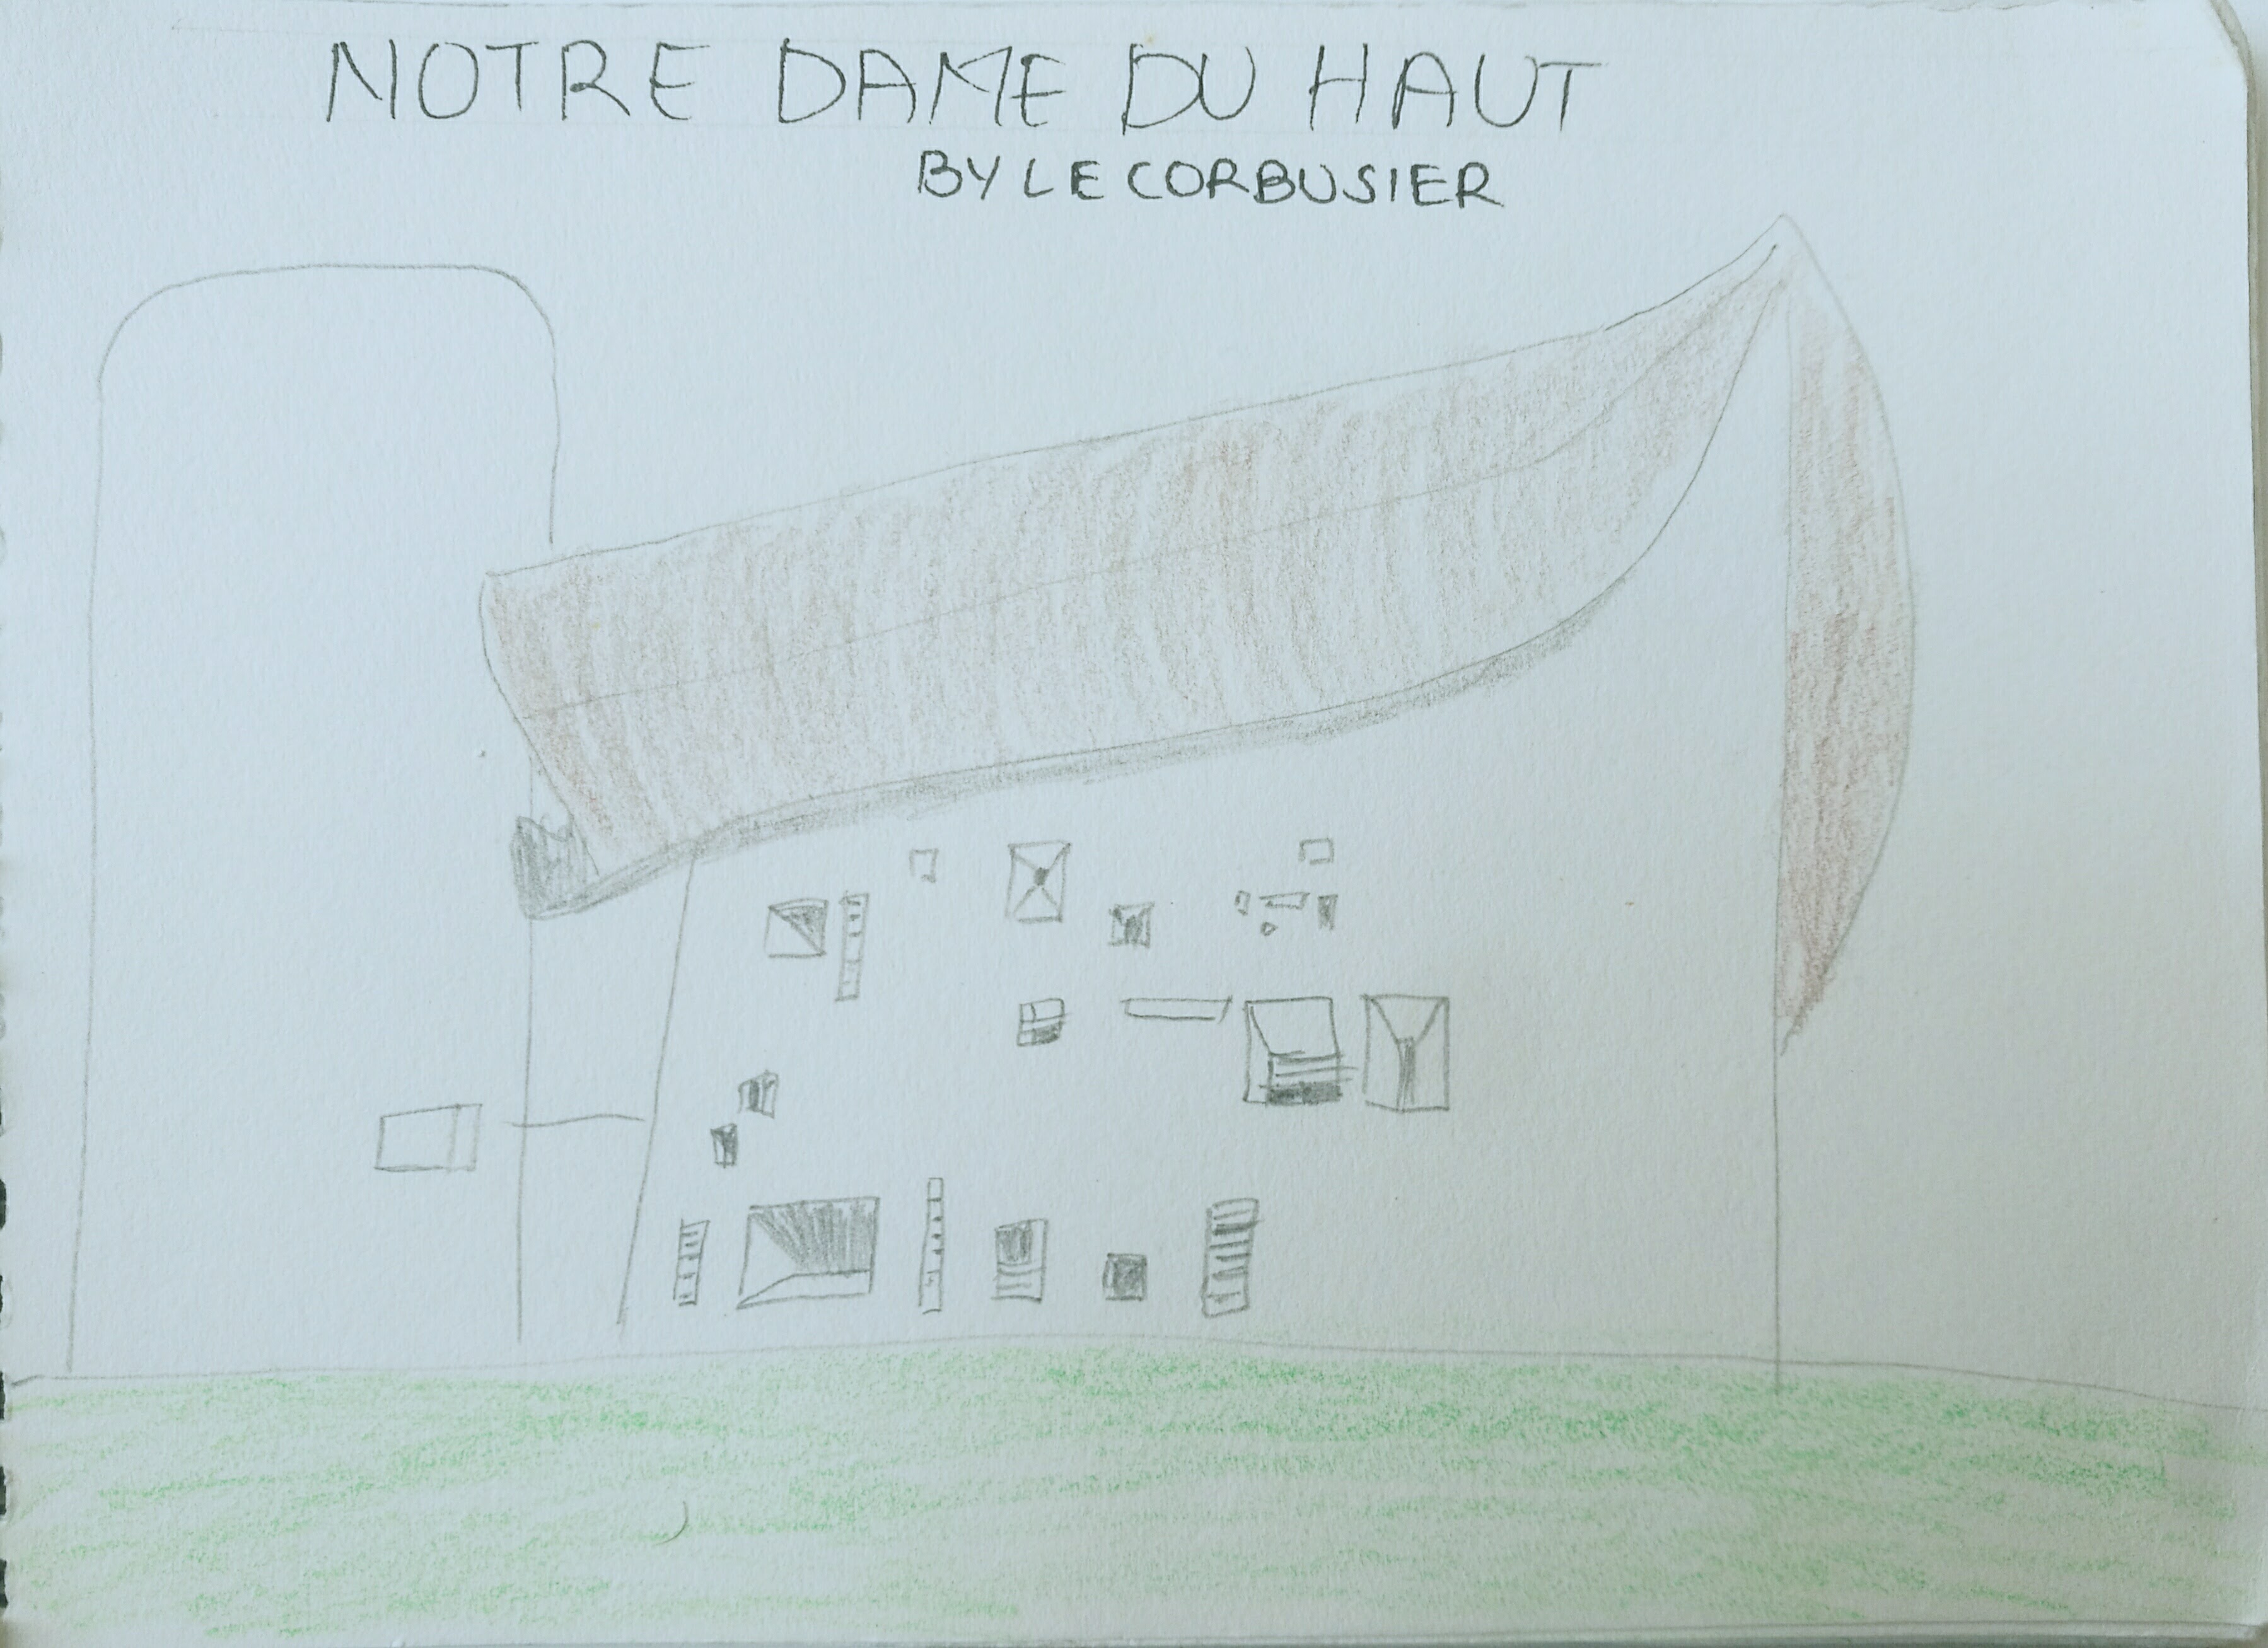 NOTRE DAME DU HAUT
BY LE CORBUSIER